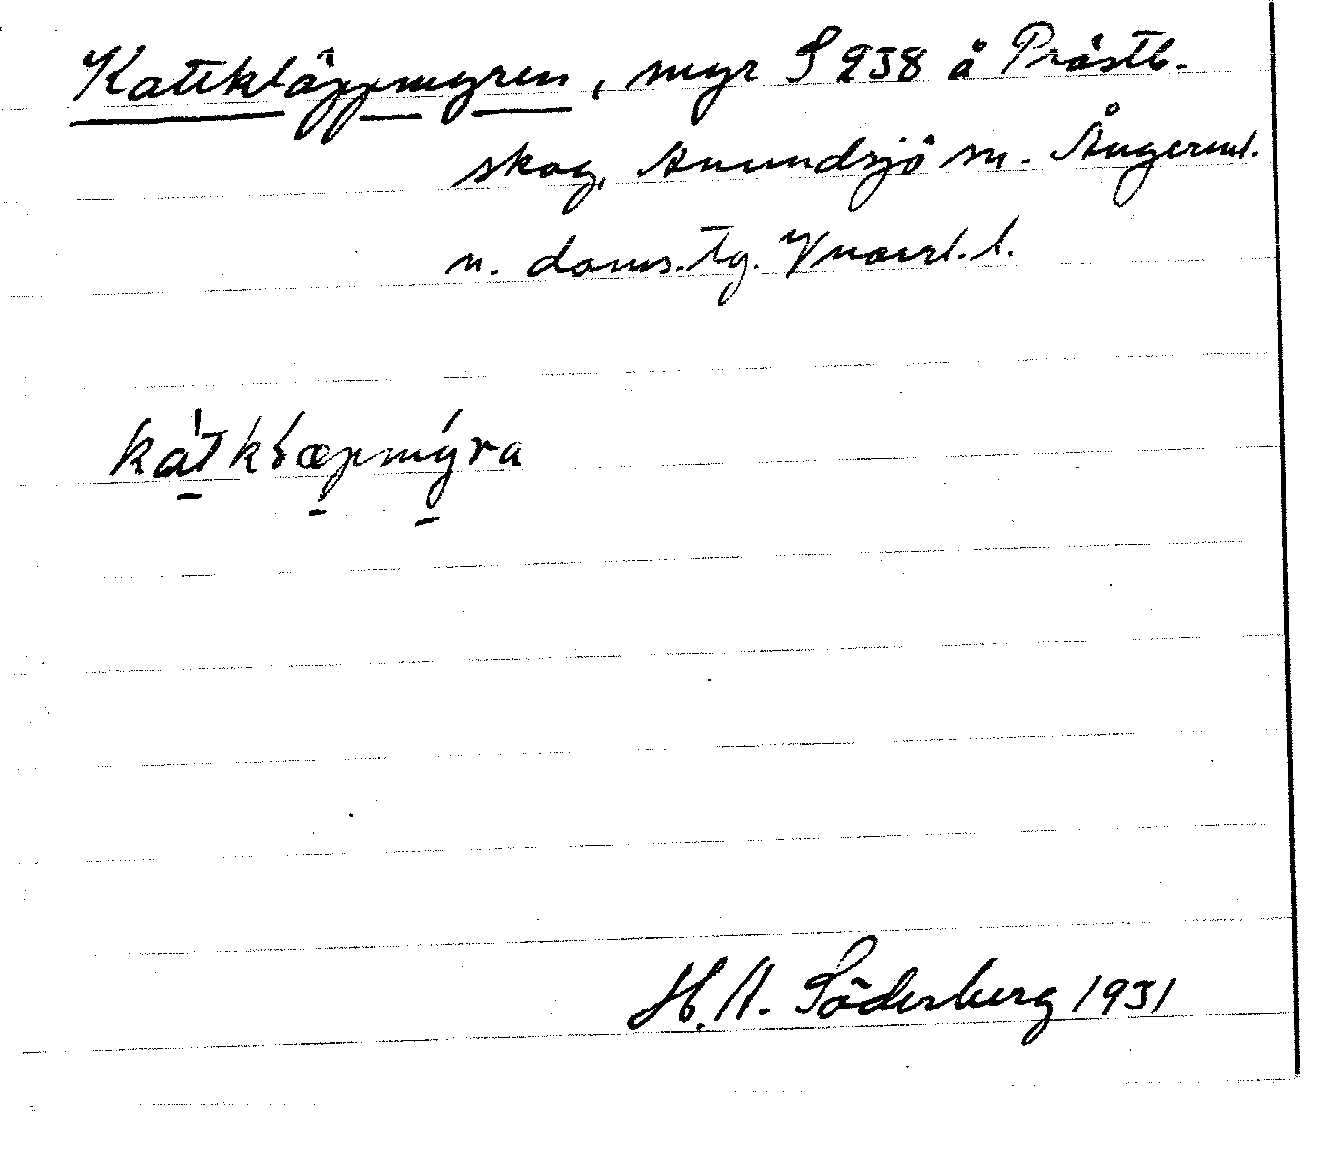 Kattkläppmyren, myr S 938 å Prästb.
skog, Anundsjö sn. Ångerml.
n. doms. tg. Vnorrl. l.
kátkłæpmýra
H. A. Söderberg 1931